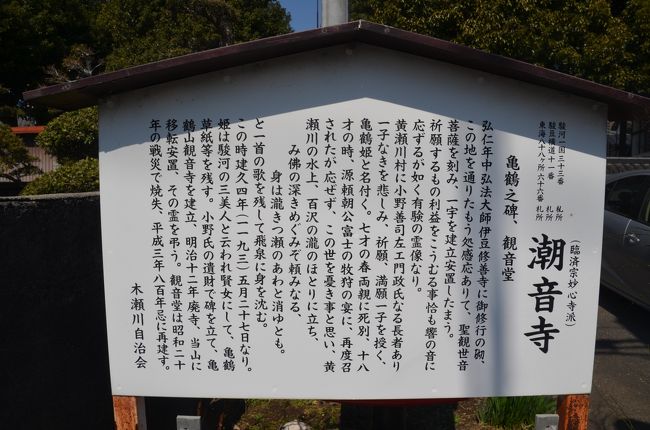 駿河一国三十三番 札所
駿豆横道十一番 札所
東海八十八ヶ所 六十六番 札所
(臨済宗妙心寺派)
潮音寺
亀鶴之碑、観音堂
弘仁年中弘法大師伊豆修善寺に御修行の砌、
この地を通りたもう処感応ありて、聖観世音
菩薩を刻み、一宇を建立安置したまう。
祈願するもの利益をこうむる事恰も響の音に
応ずるが如く有験の霊像なり。
黄瀬川村に小野善司左エ門政氏なる長者あり
一子なきを悲しみ、祈願、満願一子を授く、
亀鶴姫と名付く。七才の春両親に死別、十八
才の時、源頼朝公富士の牧狩の宴に、再度召
されたが応ぜず、この世を憂き事と思い、黄
瀬川の水上、百沢の瀧のほとりに立ち、
み佛の深きめぐみぞ頼みなる、
身は瀧きつ瀬のあわと消ゆとも。
と一首の歌を残して飛泉に身を沈む。
この時建久四年(一一九三)五月二十七日なり。
姫は駿河の三美人と云われ賢女にして、亀鶴
草紙等を残す。小野氏の遺財で碑を立て、亀
鶴山観音寺を建立、明治十二年廃寺、当山に
移転安置、その霊を弔う。観音堂は昭和二十
年の戦災で焼失、平成三年八百年忌に再建す。
木瀬川自治会